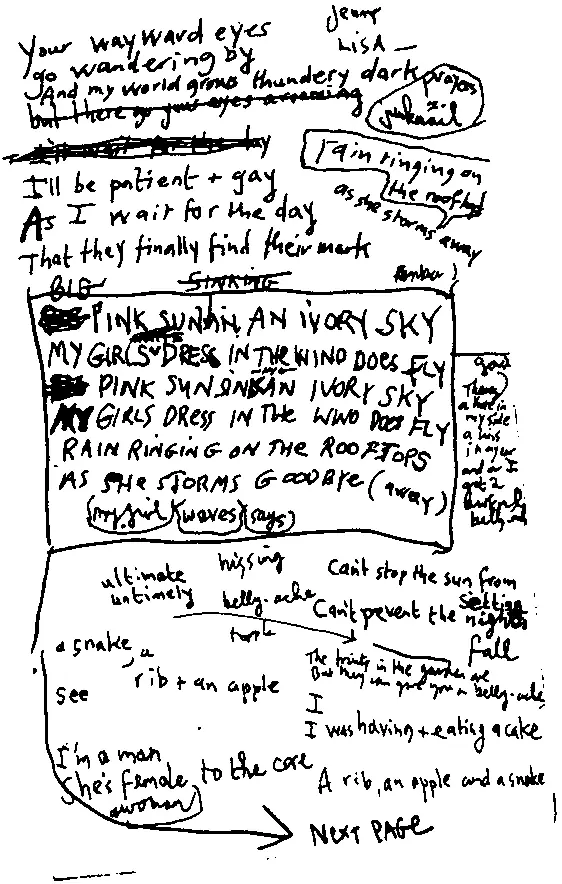 Jenny
LISA —
Your wayward eyes
go wandering by
And my world grows thundery dark
but there go your eyes
I'll be patient + gay
As I wait for the day
That they finally find their mark
Rain ringing on
the rooftop
as she storms away
BIG SINKING
PINK SUN IN AN IVORY SKY
MY GIRL'S DRESS IN THE WIND DOES FLY
PINK SUN IN AN IVORY SKY
MY GIRLS DRESS IN THE WIND DOES FLY
RAIN RINGING ON THE ROOFTOPS
AS SHE STORMS GOODBYE (away)
(my girl) (waves) (says)
a hole in
my side
and
got 2
belly-
ultimate
untimely
hissing
belly-ache
Can't stop the sun from
setting
Can't prevent the night's
fall
a snake, a
rib + an apple
see
The fruits in the garden are
But they can give you a belly-ache
I
I was having + eating a cake
I'm a man
She's female to the core
a woman
A rib, an apple and a snake
NEXT PAGE